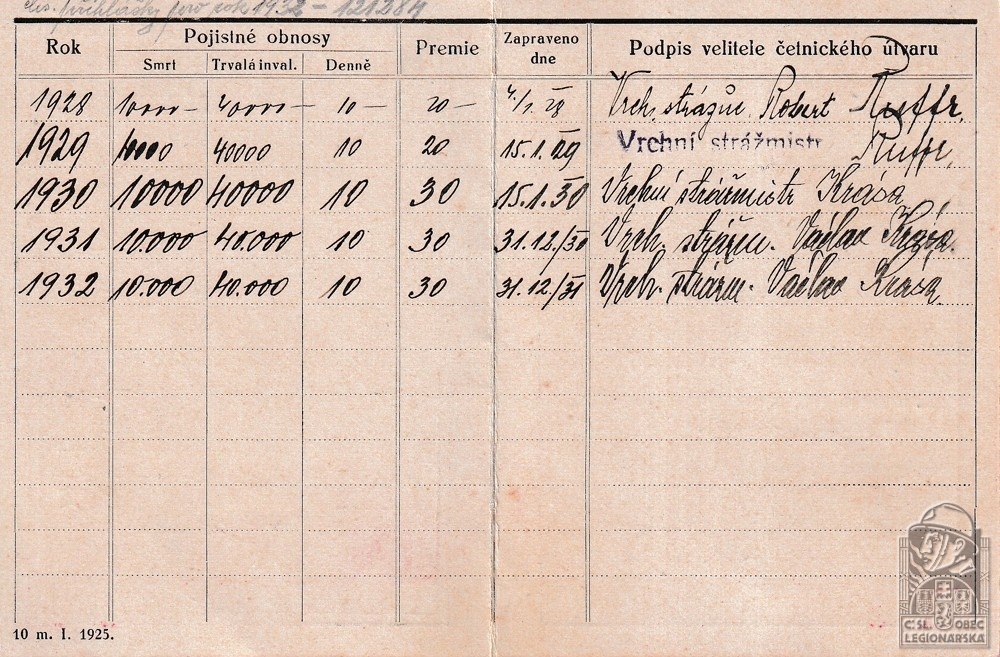 čís. přihlášky pro rok 1932 – 121284
Rok Pojistné obnosy Premie Zapraveno dne Podpis velitele četnického útvaru
Smrt Trvalá inval. Denně
1928 10000 – 40000 – 10 – 20 – Vrch. strážm. Robert Ruffr.
1929 10000 40000 10 20 15.1.29 Vrchní strážmistr Ruffr
1930 10000 40000 10 30 15.1.30 Vrchní strážmistr Krása
1931 10.000 40.000 10 30 31.12./30 Vrch. strážm. Václav Krása.
1932 10.000 40.000 10 30 31.12/31 Vrch. strážm. Václav Krása.
10 m. I. 1925.
ČSL. OBEC
LEGIONÁŘSKÁ